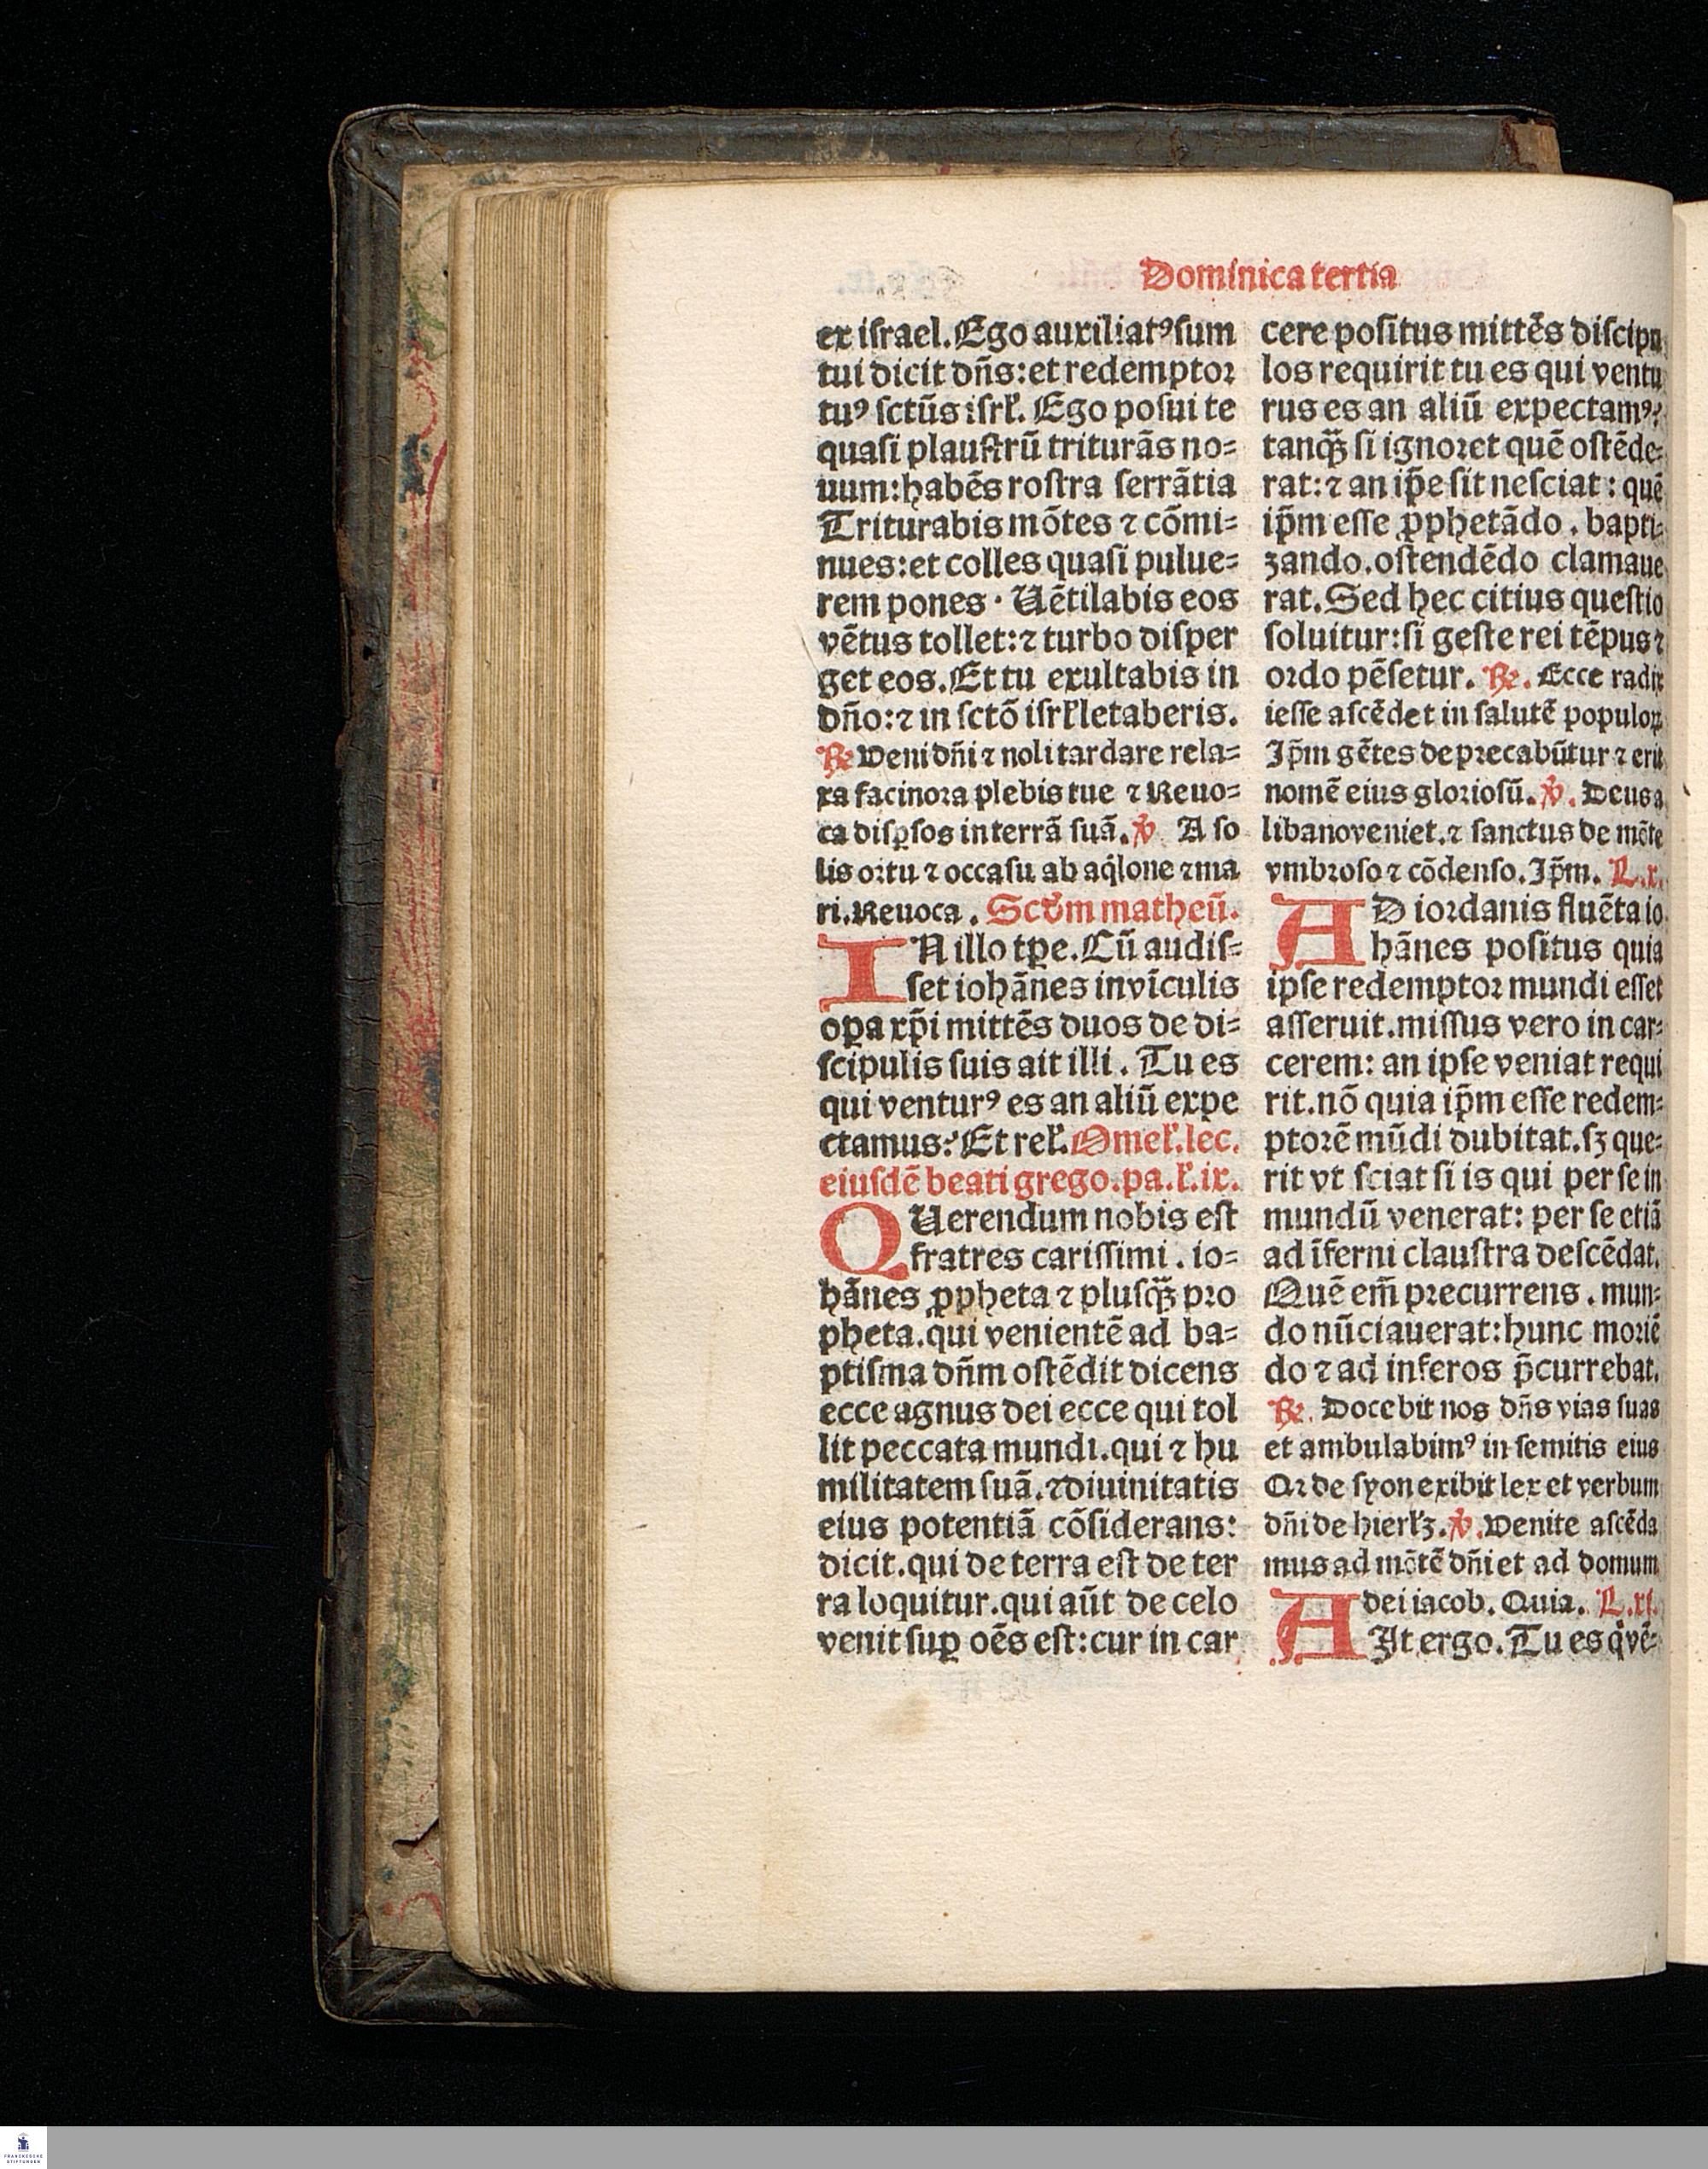 Dominica tertia
ex iſrael. Ego auxiliatꝰ ſum
tui dicit dn̄s: et redemptoꝛ
tuꝰ ſctūs iſrl̓. Ego poſui te
quaſi plauſtrū triturās no⸗
uum: habēs roſtra ſerrātia
Triturabis mōtes ⁊ cōmi⸗
nues: et colles quaſi pulue⸗
rem pones. Uētilabis eos
vētus tollet: ⁊ turbo diſper
get eos. Et tu exultabis in
dn̄o: ⁊ in ſctō iſrl̓ letaberis.
℞ Veni dn̄i ⁊ noli tardare rela⸗
xa facinoꝛa plebis tue ⁊ Reuo⸗
ca diſꝑſos in terrā ſuā. ℣ A ſo
lis oꝛtu ⁊ occaſu ab aq̇lone ⁊ ma
ri. Reuoca. Scd̓m matheū.
IN illo tꝑe. Cū audiſ⸗
ſet iohānes in vīculis
oꝑa xp̄i mittēs duos de di⸗
ſcipulis ſuis ait illi. Tu es
qui venturꝰ es an aliū expe
ctamus? Et rel̓. Omel̓. lec.
eiuſdē beati grego. pa. l̓. ix.
QUerendum nobis eſt
fratres cariſſimi. io⸗
hānes ꝓpheta ⁊ pluſqꝫ̄ pꝛo
pheta. qui venientē ad ba⸗
ptiſma dn̄m oſtēdit dicens
ecce agnus dei ecce qui tol
lit peccata mundi. qui ⁊ hu
militatem ſuā. ⁊ diuinitatis
eius potentiā cōſiderans:
dicit. qui de terra eſt de ter
ra loquitur. qui aūt de celo
venit ſuꝑ oēs eſt: cur in car
cere poſitus mittēs diſcipu
los requirit tu es qui ventu
rus es an aliū expectamꝰ?
tanqꝫ̄ ſi ignoꝛet quē oſtēde⸗
rat: ⁊ an ip̄e ſit neſciat: quē
ip̄m eſſe ꝓphetādo. bapti⸗
zando. oſtendēdo clamaue
rat. Sed hec citius queſtio
ſoluitur: ſi geſte rei tēpus ⁊
oꝛdo pēſetur. ℞. Ecce radix
ieſſe aſcēdet in ſalutē populoꝝ
Ip̄m gētes depꝛecabūtur ⁊ erit
nomē eius gloꝛioſū. ℣. Deus a
libano veniet. ⁊ ſanctus de mōte
vmbꝛoſo ⁊ cōdenſo. Ip̄m. L. x.
AD ioꝛdanis fluēta io
hānes poſitus quia
ipſe redemptoꝛ mundi eſſet
aſſeruit. miſſus vero in car⸗
cerem: an ipſe veniat requi
rit. nō quia ip̄m eſſe redem⸗
ptoꝛē mūdi dubitat. ſꝫ que⸗
rit vt ſciat ſi is qui per ſe in
mundū venerat: per ſe etiā
ad īferni clauſtra deſcēdat.
Quē em̄ pꝛecurrens. mun⸗
do nūciauerat: hunc moꝛiē
do ⁊ ad inferos p̄currebat.
℞. Docebit nos dn̄s vias ſuas
et ambulabimꝰ in ſemitis eius
Qꝛ de ſyon exibit lex et verbum
dn̄i de hierl̓ꝫ. ℣. Venite aſcēda
mus ad mōtē dn̄i et ad domum
dei iacob. Quia. L. xi.
AIt ergo. Tu es q̇ vē⸗
FRANCKESCHE
STIFTUNGEN